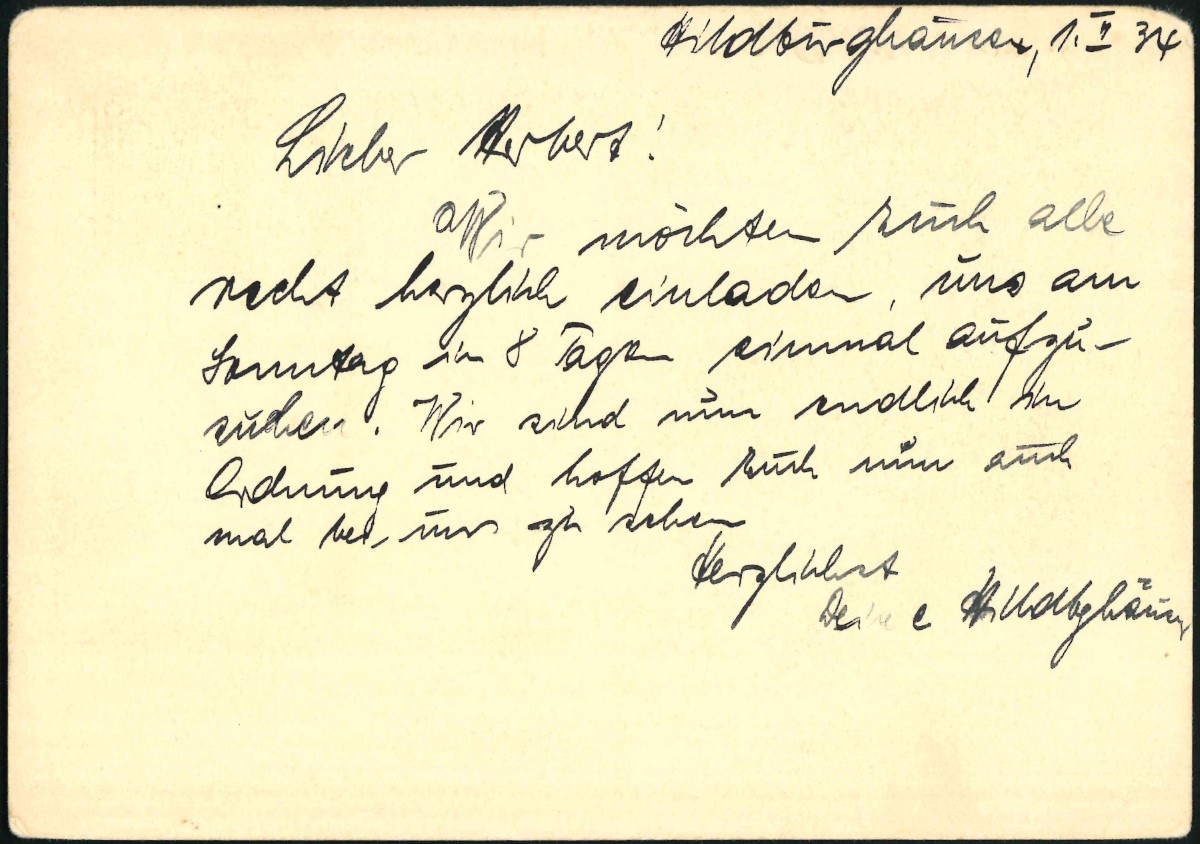 Hildburghausen, 1. II 34
Lieber Herbert!
Wir möchten Euch alle
recht herzlich einladen, uns am
Sonntag in 8 Tagen einmal aufzu-
suchen. Wir sind nun endlich in
Ordnung und hoffen Euch nun auch
mal bei uns zu sehen
Herzlichst
Deine Hildbghäuser